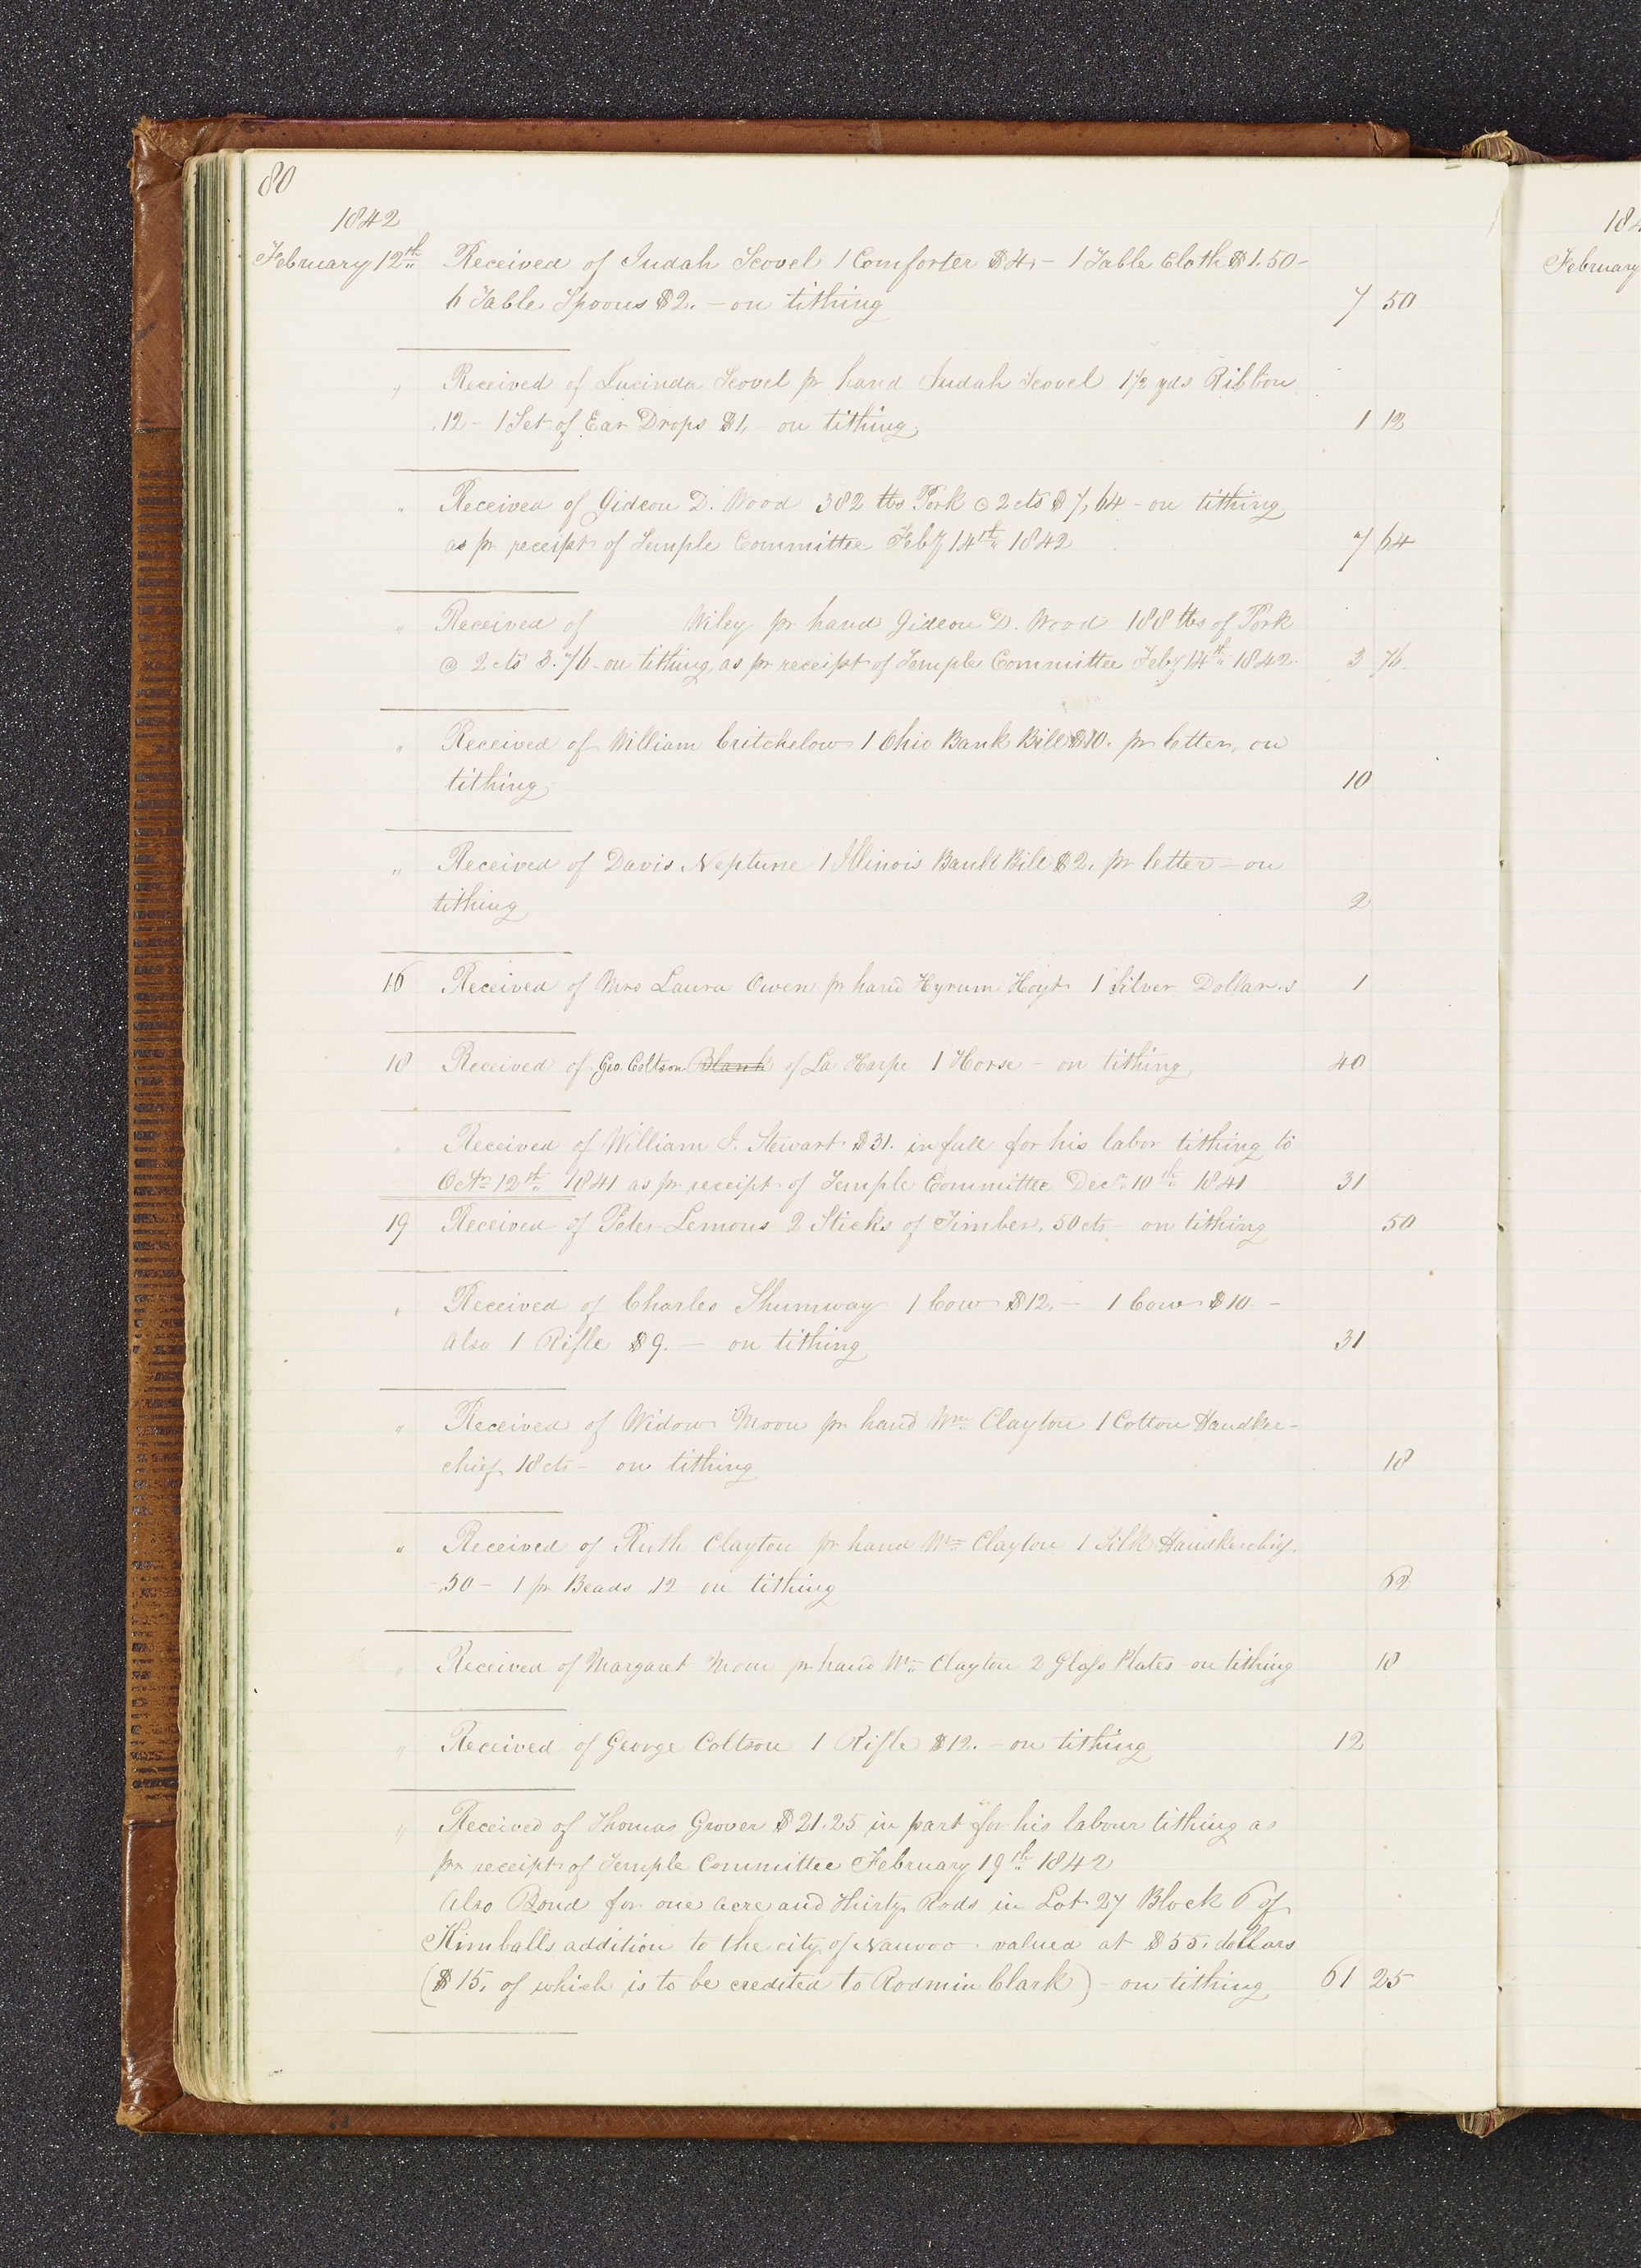 80
1842
February 12th Received of Judah Scovel 1 Comforter $4,– 1 Table Cloth $1.50–
6 Table Spoons $2. – on tithing 7 50
" Received of Lucinda Scovel pr hand Judah Scovel 1 1/2 yds Ribbon
.12 – 1 Set of Ear Drops $1, on tithing, 1 12
" Received of Gideon D. Wood 382 lbs Pork @ 2 cts $7,64 – on tithing
as pr receipt of Temple Committee Feby 14th 1842 7 64
" Received of Wiley pr hand Gideon D. Wood 188 lbs of Pork
@ 2 cts 3.76 – on tithing, as pr receipt of Temple Committee Feby 14th 1842 3 76
" Received of William Critchelow 1 Ohio Bank Bill $10. pr letter, on
tithing 10
" Received of Davis Neptune 1 Illinois Bank Bill $2, pr letter – on
tithing 2
16 Received of Mrs Laura Owen pr hand Hyrum Hoyt 1 Silver Dollar 1
18 Received of Geo. Coltson Blank of La Harpe 1 Horse – on tithing 40
" Received of William J. Stewart $31. in full for his labor tithing to
Octr 12th 1841 as pr receipt of Temple Committee Decr 10th 1841 31
19 Received of Peter Lemons 2 Sticks of Timber, 50 cts – on tithing 50
" Received of Charles Shumway 1 Cow $12, – 1 Cow $10 –
Also 1 Rifle $9. – on tithing 31
" Received of Widow Moon pr hand Wm Clayton 1 Cotton Handker-
chief 18 cts – on tithing 18
" Received of Ruth Clayton pr hand Wm Clayton 1 Silk Handkerchief
.50 – 1 pr Beads .12 on tithing 62
" Received of Margaret Moon pr hand Wm Clayton 2 Glass Plates on tithing 18
" Received of George Coltson 1 Rifle $12. – on tithing 12
" Received of Thomas Grover $21.25 in part for his labour tithing as
pr receipt of Temple Committee February 19th 1842
Also Bond for one acre and thirty Rods in Lot 27 Block 6 of
Kimballs addition to the city of Nauvoo valued at $55, dollars
($15, of which is to be credited to Rodmin Clark) – on tithing 61 25
184
February